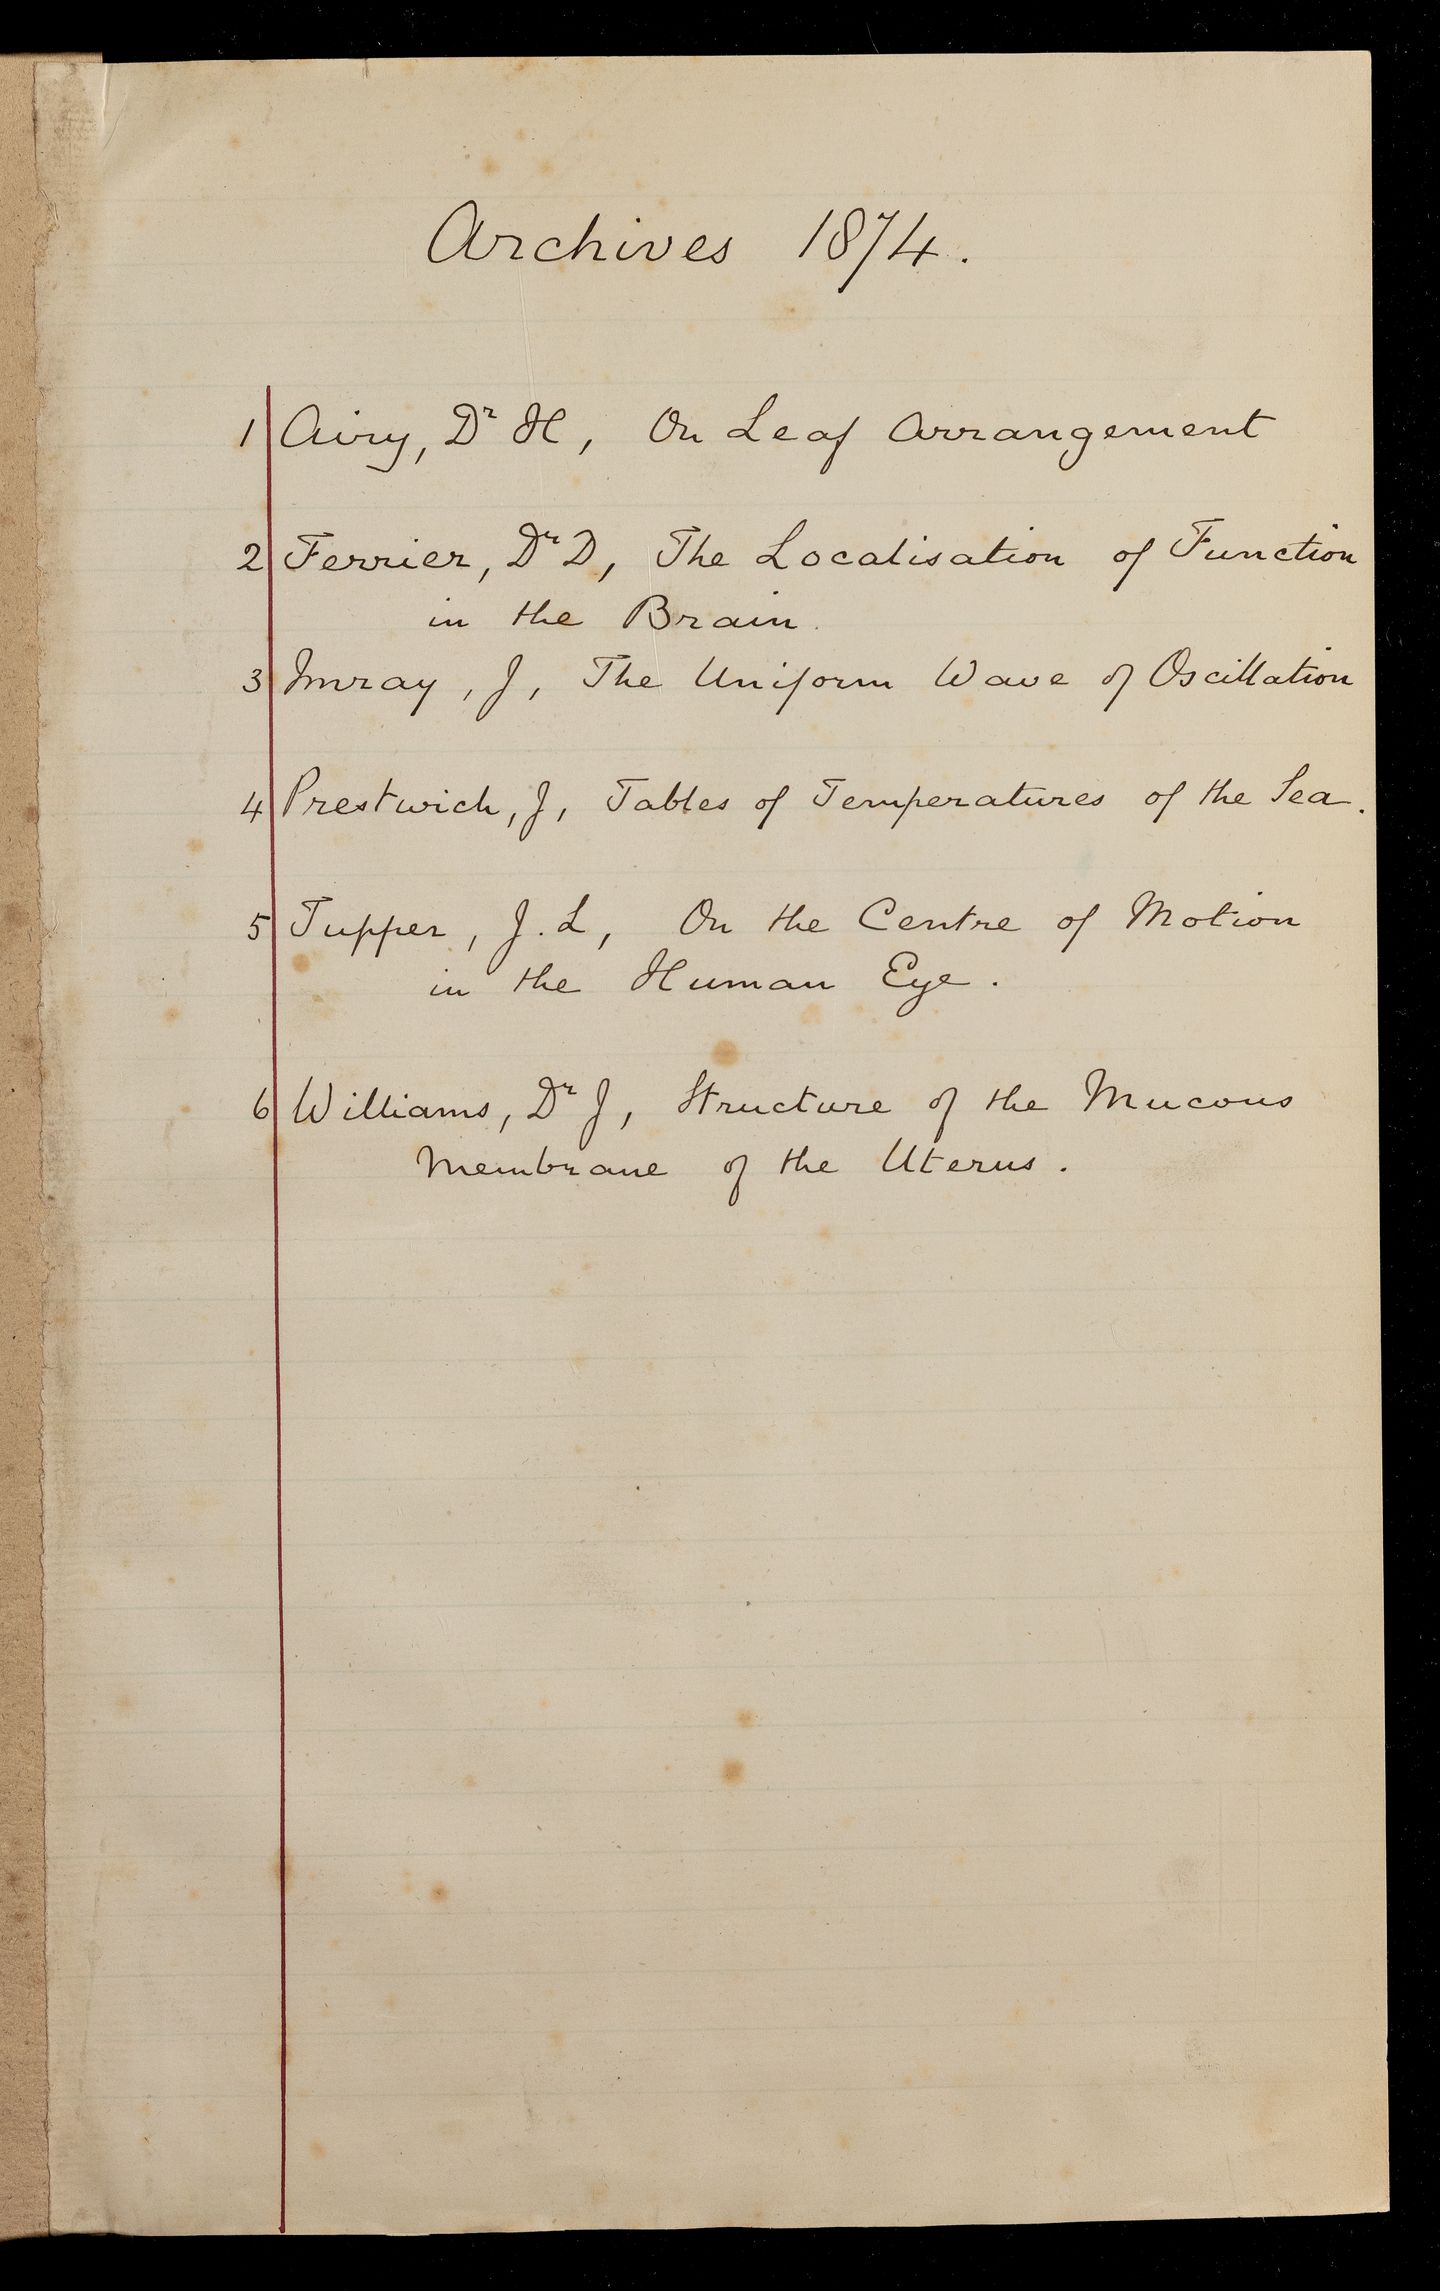 Archives 1874.
1 Airy, Dr H, On Leaf Arrangement
2 Ferrier, Dr D, The Localisation of Function
in the Brain.
3 Imray, J, The Uniform Wave of Oscillation
4 Prestwich, J, Tables of Temperatures of the Sea.
5 Tupper, J. L, On the Centre of Motion
in the Human Eye.
6 Williams, Dr J, Structure of the Mucous
Membrane of the Uterus.